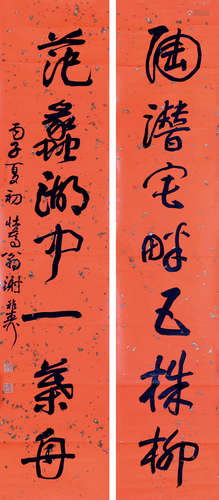 陶潛宅畔五株柳
范蠡湖中一葉舟
丙子夏初壯暮翁謝稚柳